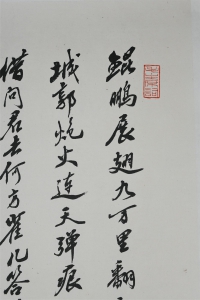 鯤鵬展翅九万里翻
城郭炮火连天弹痕
借问君去何方雀儿答